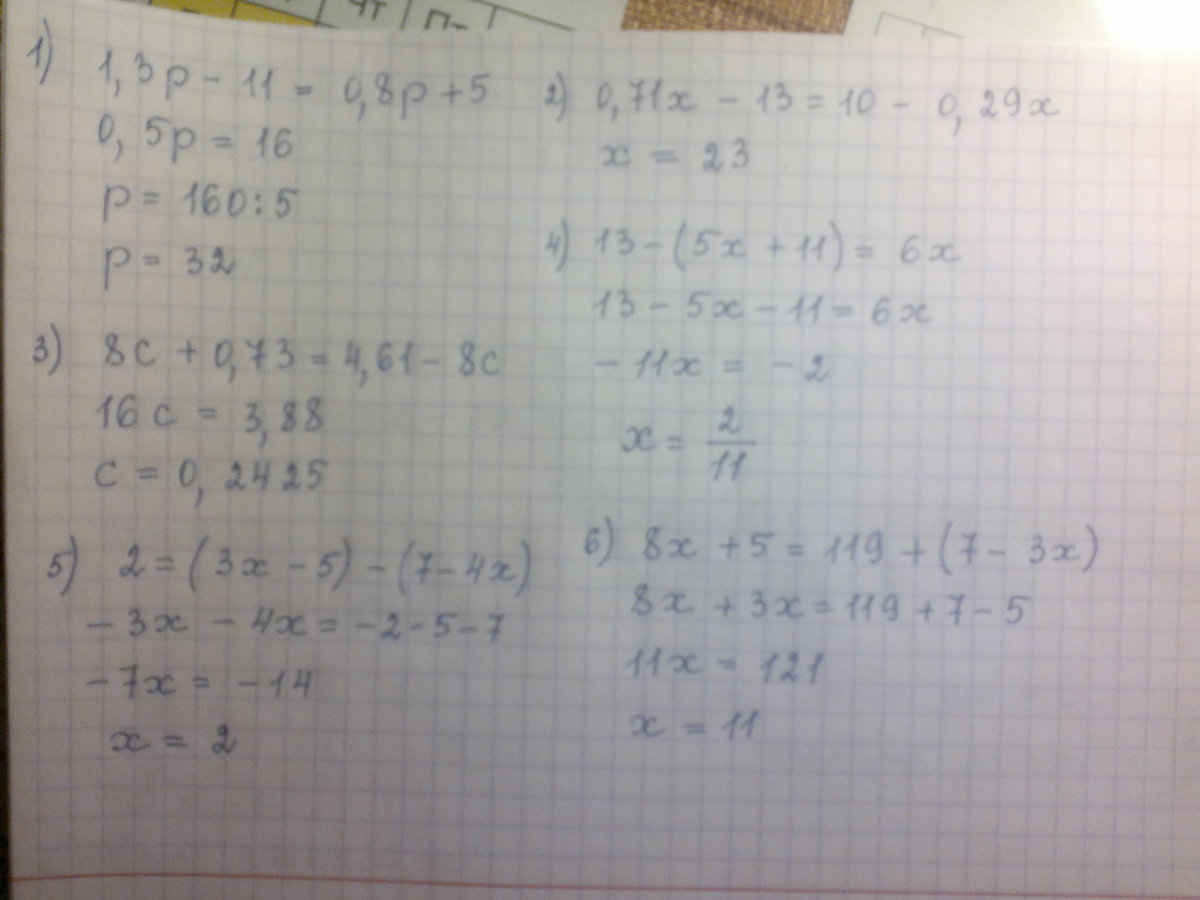 Чт
1) 1,3p - 11 = 0,8p + 5
0,5p = 16
p = 160:5
p = 32
2) 0,71x - 13 = 10 - 0,29x
x = 23
3) 8c + 0,73 = 4,61 - 8c
16c = 3,88
c = 0,2425
4) 13 - (5x + 11) = 6x
13 - 5x - 11 = 6x
-11x = -2
x = 2/11
5) 2 = (3x - 5) - (7 - 4x)
-3x - 4x = -2 - 5 - 7
-7x = -14
x = 2
6) 8x + 5 = 119 + (7 - 3x)
8x + 3x = 119 + 7 - 5
11x = 121
x = 11